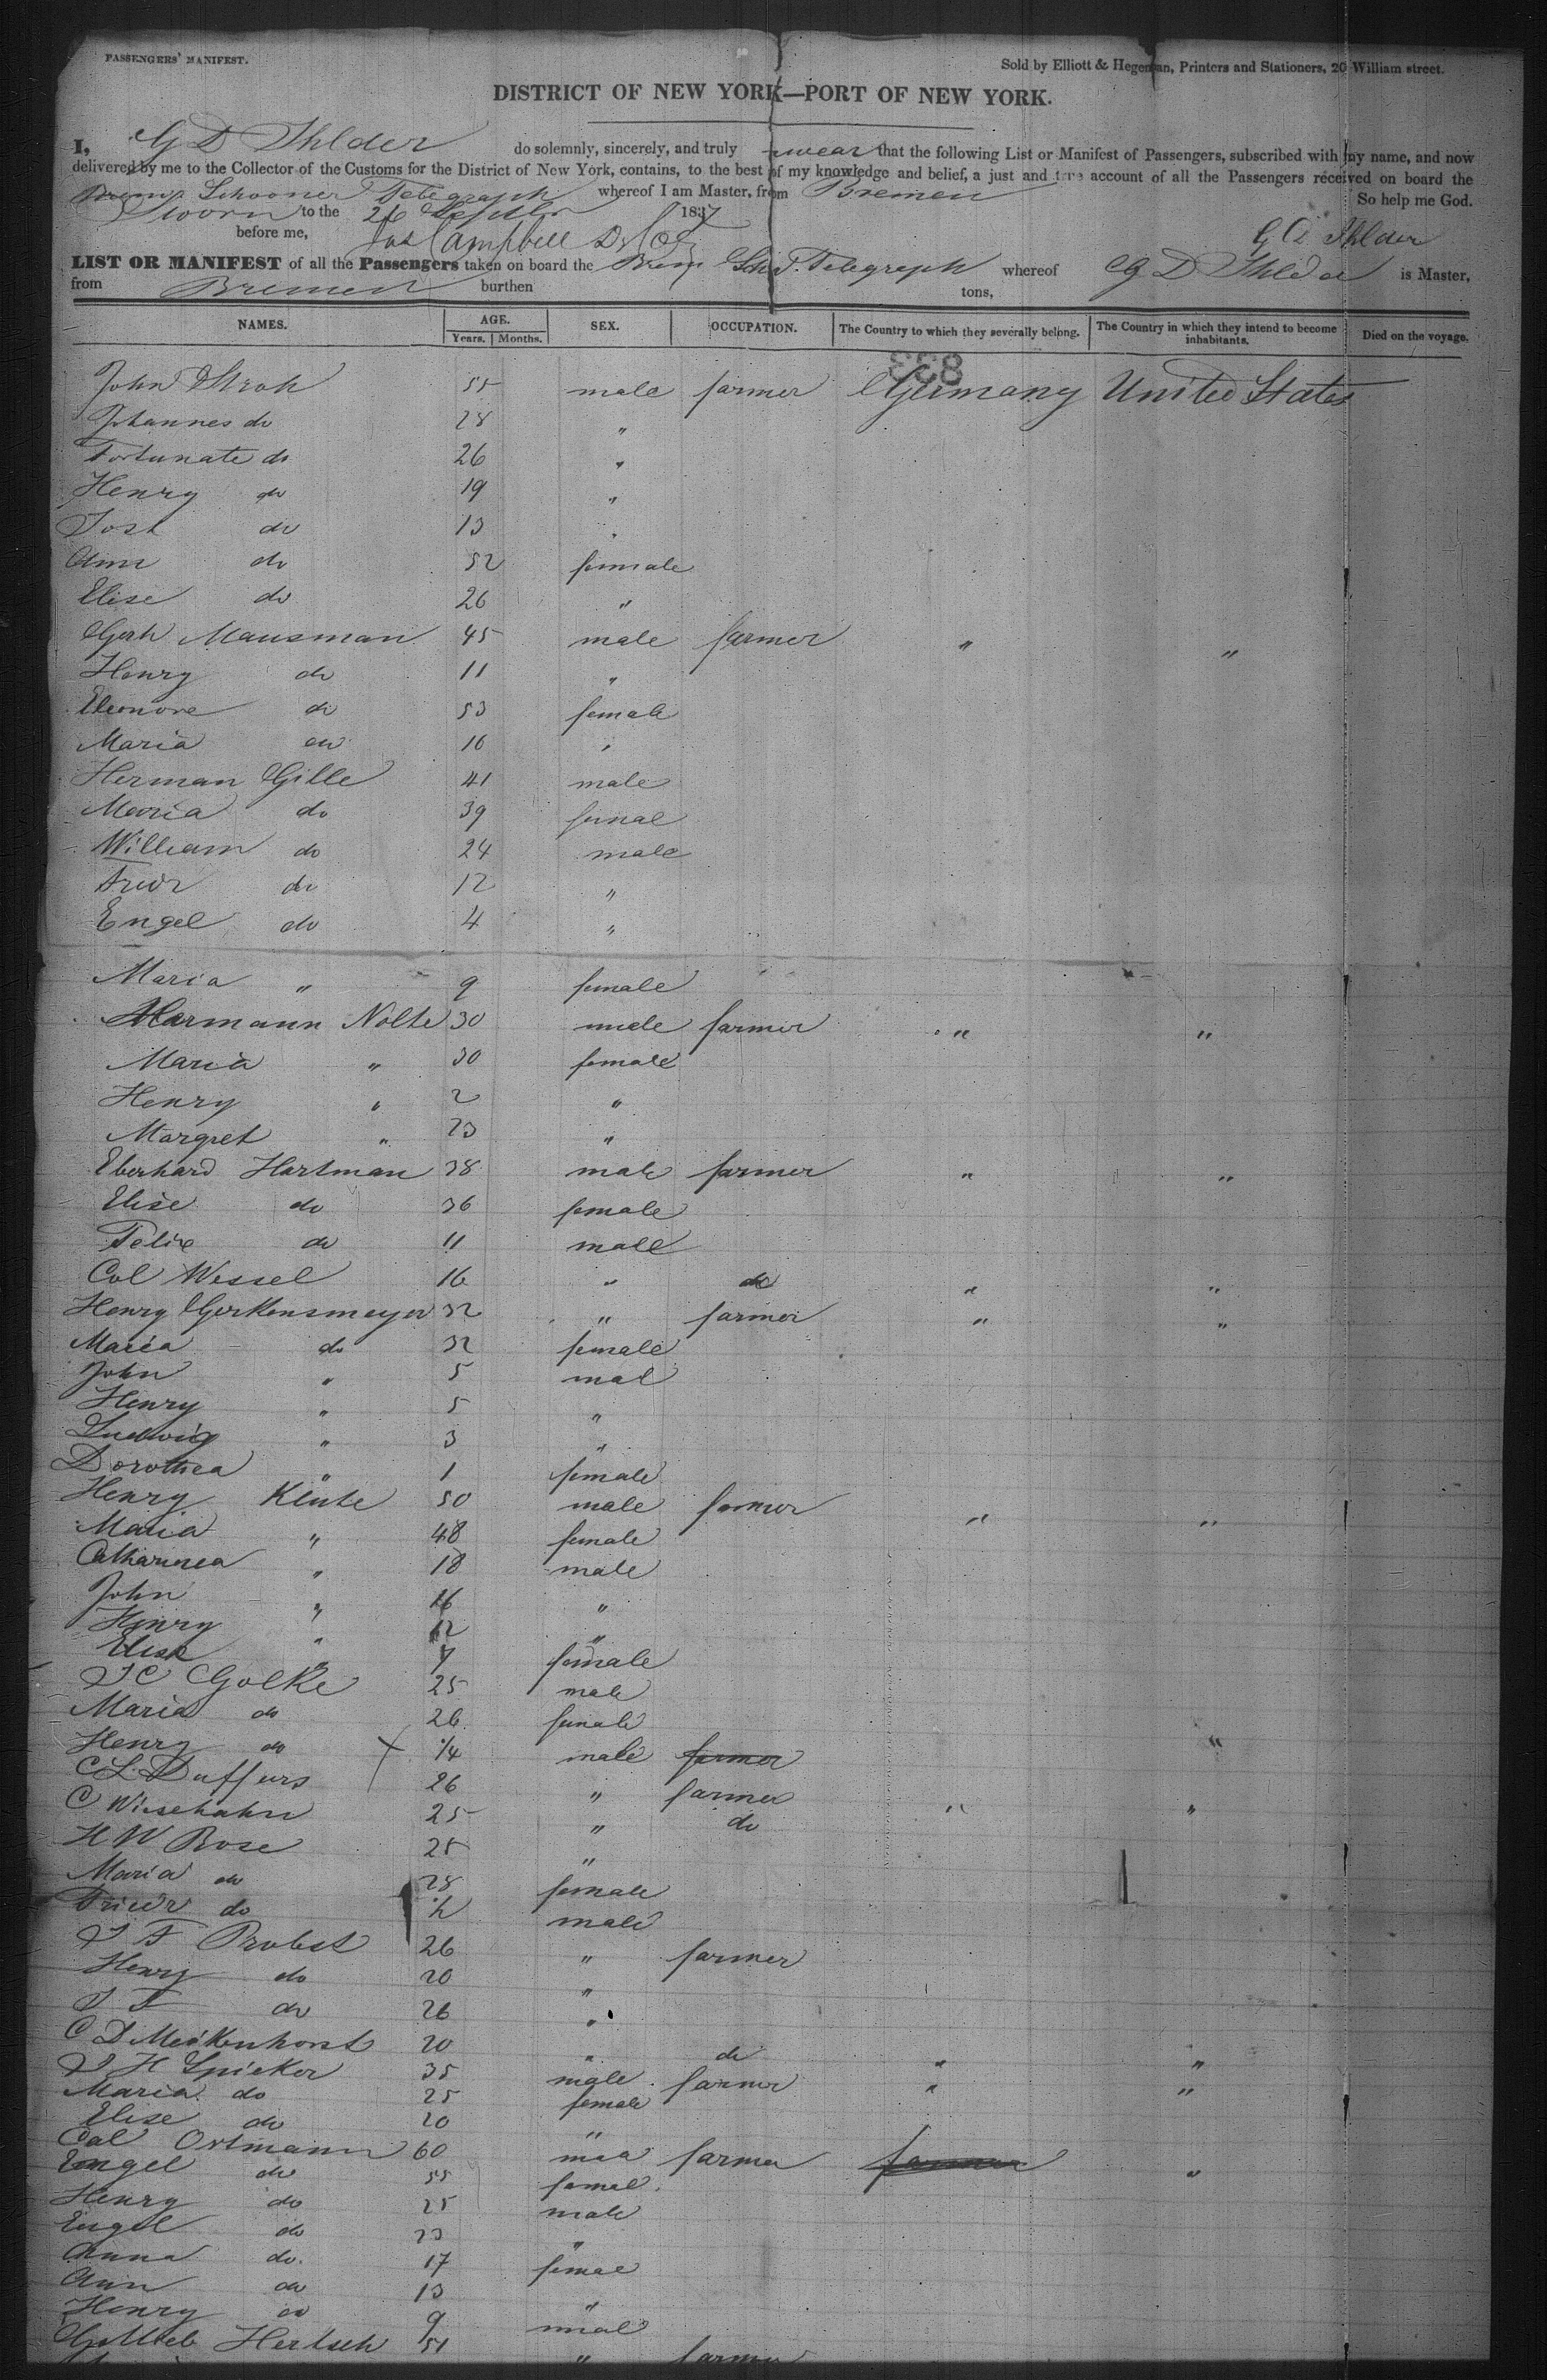 PASSENGERS' MANIFEST.
Sold by Elliott & Hegeman, Printers and Stationers, 20 William street.
DISTRICT OF NEW YORK—PORT OF NEW YORK.
I, G D Ihlder do solemnly, sincerely, and truly swear that the following List or Manifest of Passengers, subscribed with my name, and now
delivered by me to the Collector of the Customs for the District of New York, contains, to the best of my knowledge and belief, a just and true account of all the Passengers received on board the
Schooner Telegraph whereof I am Master, from Bremen So help me God.
Sworn to the 26 1837
before me, Campbell G D Ihlder
LIST OR MANIFEST of all the Passengers taken on board the Brem Schr. Telegraph whereof G D Ihlder is Master,
from Bremen burthen tons,
NAMES. AGE. SEX. OCCUPATION. The Country to which they severally belong. The Country in which they intend to become inhabitants. Died on the voyage.
Years. Months.
833
John Stroh 55 male farmer Germany United States
Johannes do 28 "
Fortunate do 26 "
Henry do 19 "
Jost do 13 "
Ann do 52 female
Elise do 26 "
Gerh Mausman 45 male farmer " "
Henry do 11 "
Eleonore do 53 female
Maria do 16 "
Herman Gille 41 male
Maria do 39 femal
William do 24 male
Friedr do 12 "
Engel do 4 "
Maria " 9 female
Harmann Nolte 30 male farmer " "
Maria " 30 female
Henry " 2 "
Margret " 23 "
Eberhard Hartman 38 male farmer " "
Elise do 36 female
Felix do 11 male
Col Wessel 16 " do " "
Henry Gerkensmeyer 32 " farmer " "
Maria do 32 female
John " 5 mal
Henry " 5 "
Ludwig " 3 "
Dorothea " 1 female
Henry Klute 50 male farmer " "
Maria " 48 female
Catharinea " 18 male
John " 16 "
Henry " 12 "
Elise " 7 female
J C Golke 25 male
Maria do 26 female
Henry do 1/4 male farmer "
C L Duffurs 26 " farmer
C Wiesehahn 25 " do " "
H W Bose 25 "
Maria do 28 female
Friedr do 1/2 male
J F Probst 26 " farmer
Henry do 20 "
J F do 26 "
C D Meikenhorst 20 " do " "
J H Spieker 35 male farmer " "
Maria do 25 female
Elise do 20 "
Cal Ortmann 60 maa farmer farmer "
Engel do 55 femal
Henry do 25 male
Engel do 23 "
Anna do. 17 femae
Ann do 13 "
Henry do 9 mal
Gottlieb Hertsch 51 " farmer